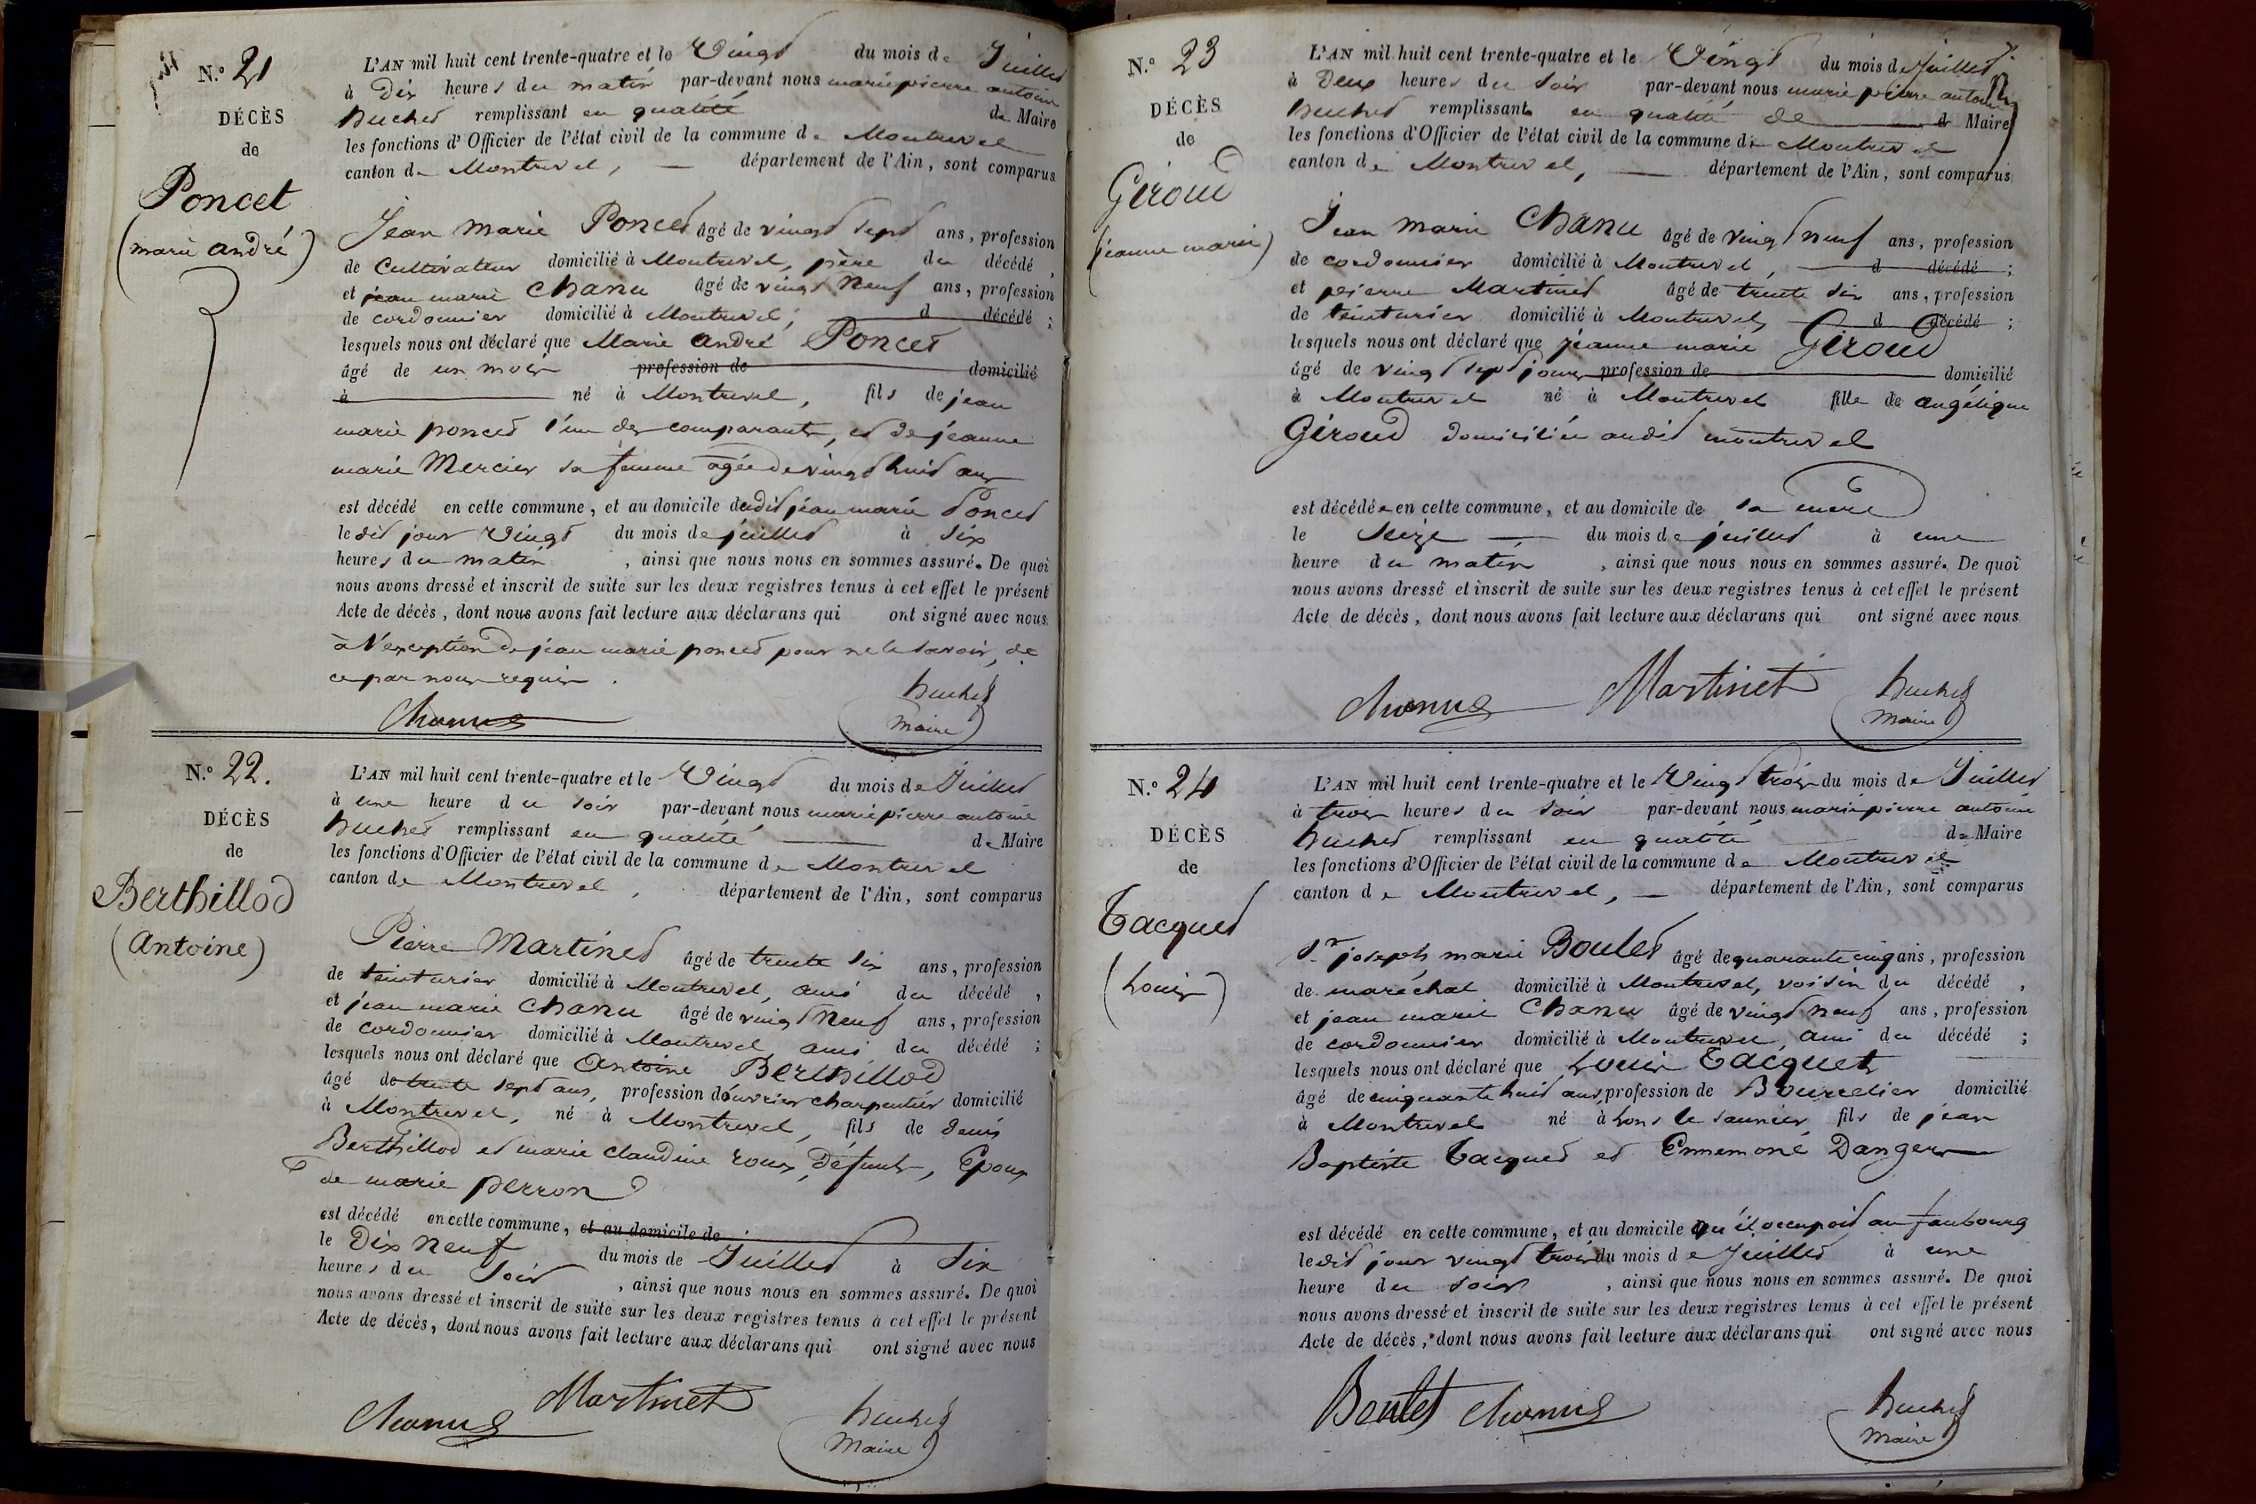 N.o 21
DÉCÈS
de
Poncet
(marie andré)
L'AN mil huit cent trente-quatre et le Vingt du mois de Juillet
à Dix heures du matin par-devant nous marie pierre antoine
huchet remplissant en qualité de Maire
les fonctions d'Officier de l'état civil de la commune de Montrevel
canton de Montrevel, département de l'Ain, sont comparus
Jean Marie Poncet âgé de vingt sept ans, profession
de Cultivateur domicilié à Montrevel, père du décédé,
et jean marie Chanu âgé de vingt neuf ans, profession
de cordonnier domicilié à Montrevel, d décédé ;
lesquels nous ont déclaré que Marie andré Poncet
âgé de un mois profession de domicilié
à né à Montrevel, fils de jean
marie poncet l'un des comparants, et de jeanne
marie Mercier sa femme agée de vingt huit ans
est décédé en cette commune, et au domicile dudit jean marie Poncet
le dit jour Vingt du mois de juillet à six
heures du matin, ainsi que nous nous en sommes assuré. De quoi
nous avons dressé et inscrit de suite sur les deux registres tenus à cet effet le présent
Acte de décès, dont nous avons fait lecture aux déclarans qui ont signé avec nous
à l'exception de jean marie poncet pour ne le savoir, de
ce par nous requis.
Chanu huchet
Maire
N.o 22.
DÉCÈS
de
Berthillod
(Antoine)
L'AN mil huit cent trente-quatre et le Vingt du mois de Juillet
à une heure du soir par-devant nous marie pierre antoine
huchet remplissant en qualité de Maire
les fonctions d'Officier de l'état civil de la commune de Montrevel
canton de Montrevel, département de l'Ain, sont comparus
Pierre Martinet âgé de trente six ans, profession
de teinturier domicilié à Montrevel, ami du décédé,
et jean marie Chanu âgé de vingt neuf ans, profession
de cordonnier domicilié à Montrevel ami du décédé ;
lesquels nous ont déclaré que Antoine Berthillod
âgé de trente sept ans, profession d'ouvrier charpentier domicilié
à Montrevel, né à Montrevel, fils de denis
Berthillod et marie claudine roux, Défunts, Epoux
de marie perron
est décédé en cette commune, et au domicile de
le Dix neuf du mois de Juillet à Six
heures du Soir, ainsi que nous nous en sommes assuré. De quoi
nous avons dressé et inscrit de suite sur les deux registres tenus à cet effet le présent
Acte de décès, dont nous avons fait lecture aux déclarans qui ont signé avec nous
Chanu Martinet huchet
Maire
N.o 23
DÉCÈS
de
Giroud
(jeanne marie)
L'AN mil huit cent trente-quatre et le Vingt du mois de Juillet
à Deux heures du soir par-devant nous marie pierre antoine
huchet remplissant en qualité de d Maire
les fonctions d'Officier de l'état civil de la commune de Montrevel
canton de Montrevel, département de l'Ain, sont comparus
Jean Marie Chanu âgé de vingt neuf ans, profession
de cordonnier domicilié à Montrevel, d décédé ;
et pierre Martinet âgé de trente six ans, profession
de teinturier domicilié à Montrevel, d décédé ;
lesquels nous ont déclaré que jeanne marie Giroud
âgé de vingt sept jours profession de domicilié
à Montrevel né à Montrevel fille de angélique
Giroud domiciliée audit montrevel
est décédée en cette commune, et au domicile de sa mère
le Seize du mois de juillet à une
heure du matin, ainsi que nous nous en sommes assuré. De quoi
nous avons dressé et inscrit de suite sur les deux registres tenus à cet effet le présent
Acte de décès, dont nous avons fait lecture aux déclarans qui ont signé avec nous
Chanu Martinet huchet
Maire
N.o 24
DÉCÈS
de
Tacquet
(Louis)
L'AN mil huit cent trente-quatre et le Vingt trois du mois de Juillet
à trois heures du soir par-devant nous marie pierre antoine
huchet remplissant en qualité de Maire
les fonctions d'Officier de l'état civil de la commune de Montrevel
canton de Montrevel, département de l'Ain, sont comparus
Sr. joseph marie Boulet âgé de quarante cinq ans, profession
de maréchal domicilié à Montrevel, voisin du décédé,
et jean marie Chanu âgé de vingt neuf ans, profession
de cordonnier domicilié à Montrevel, ami du décédé ;
lesquels nous ont déclaré que Louis Tacquet
âgé de cinquante huit ans, profession de Bourrelier domicilié
à Montrevel né à Lons le saunier fils de jean
Baptiste Tacquet et Ennemone Dangers
est décédé en cette commune, et au domicile qu'il occupoit au faubourg
le dit jour vingt trois du mois de Juillet à une
heure du soir, ainsi que nous nous en sommes assuré. De quoi
nous avons dressé et inscrit de suite sur les deux registres tenus à cet effet le présent
Acte de décès, dont nous avons fait lecture aux déclarans qui ont signé avec nous
Boulet Chanu huchet
Maire